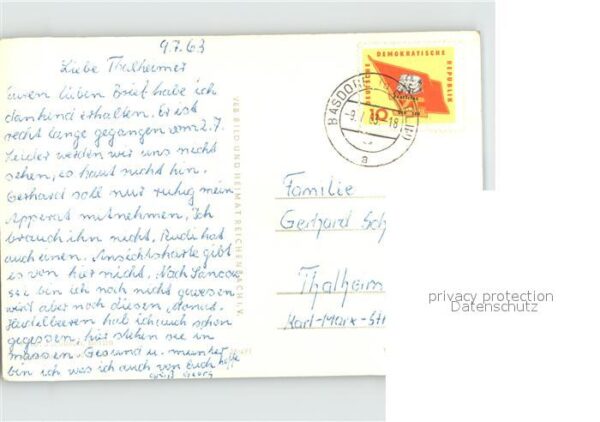 9.7.63
Liebe Thalheimer
Euren lieben Brief habe ich
dankend erhalten. Er ist
recht lange gegangen vom 2.7.
Leider werden wir uns nicht
sehen, es haut nicht hin.
Gerhard soll nur ruhig mein
Apperat mitnehmen, Ich
brauch ihn nicht, Rudi hat
auch einen. Ansichtskarte gibt
es von hier nicht. Nach
bin ich noch nicht gewesen
wird aber noch diesen Monat.
Heidelbeeren hab ich auch schon
gegessen, hier stehen sie in
massen. Gesund u. munter
bin ich was ich auch von Euch hoffe
VEB BILD UND HEIMAT REICHENBACH I.V.
DEUTSCHE DEMOKRATISCHE REPUBLIK
10
BASDORF
-9.7.63-18
a
Familie
Gerhard Sch
Thalheim
Karl-Marx-Str
privacy protection
Datenschutz